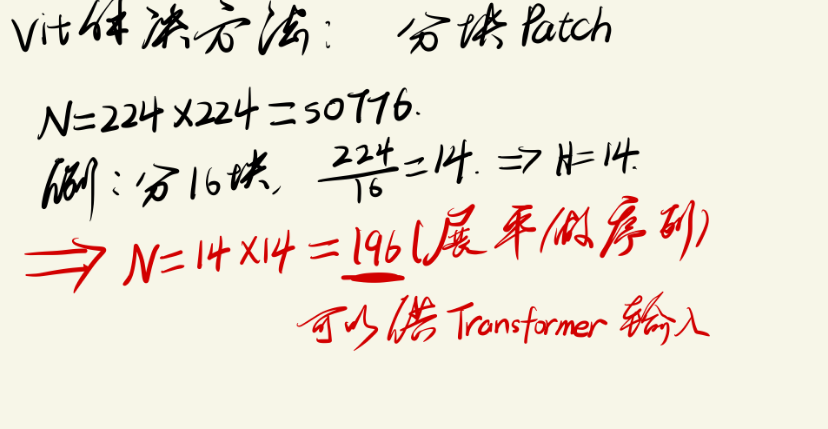 Vit解决方法: 分块Patch
N=224×224=50776.
例:分16块, 224/16=14. ⇒ H=14.
⇒ N=14×14=196(展平/做序列)
可以供Transformer输入